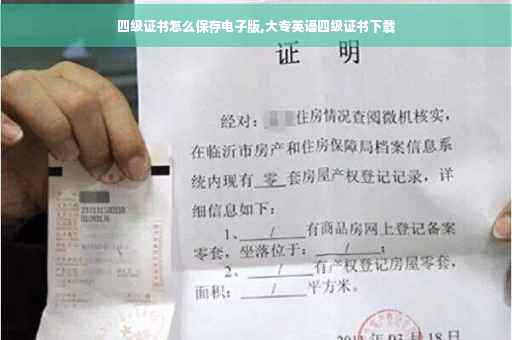 四级证书怎么保存电子版,大专英语四级证书下载
证 明
经对: 住房情况查阅微机核实,
在临沂市房产和住房保障局档案信息系
统内现有 零 套房屋产权登记记录,详
细信息如下:
1、 / 有商品房网上登记备案
零套,坐落位于: / ;
2、 / 有产权登记房屋零套,
面积: / 平方米。
03 月 18 日